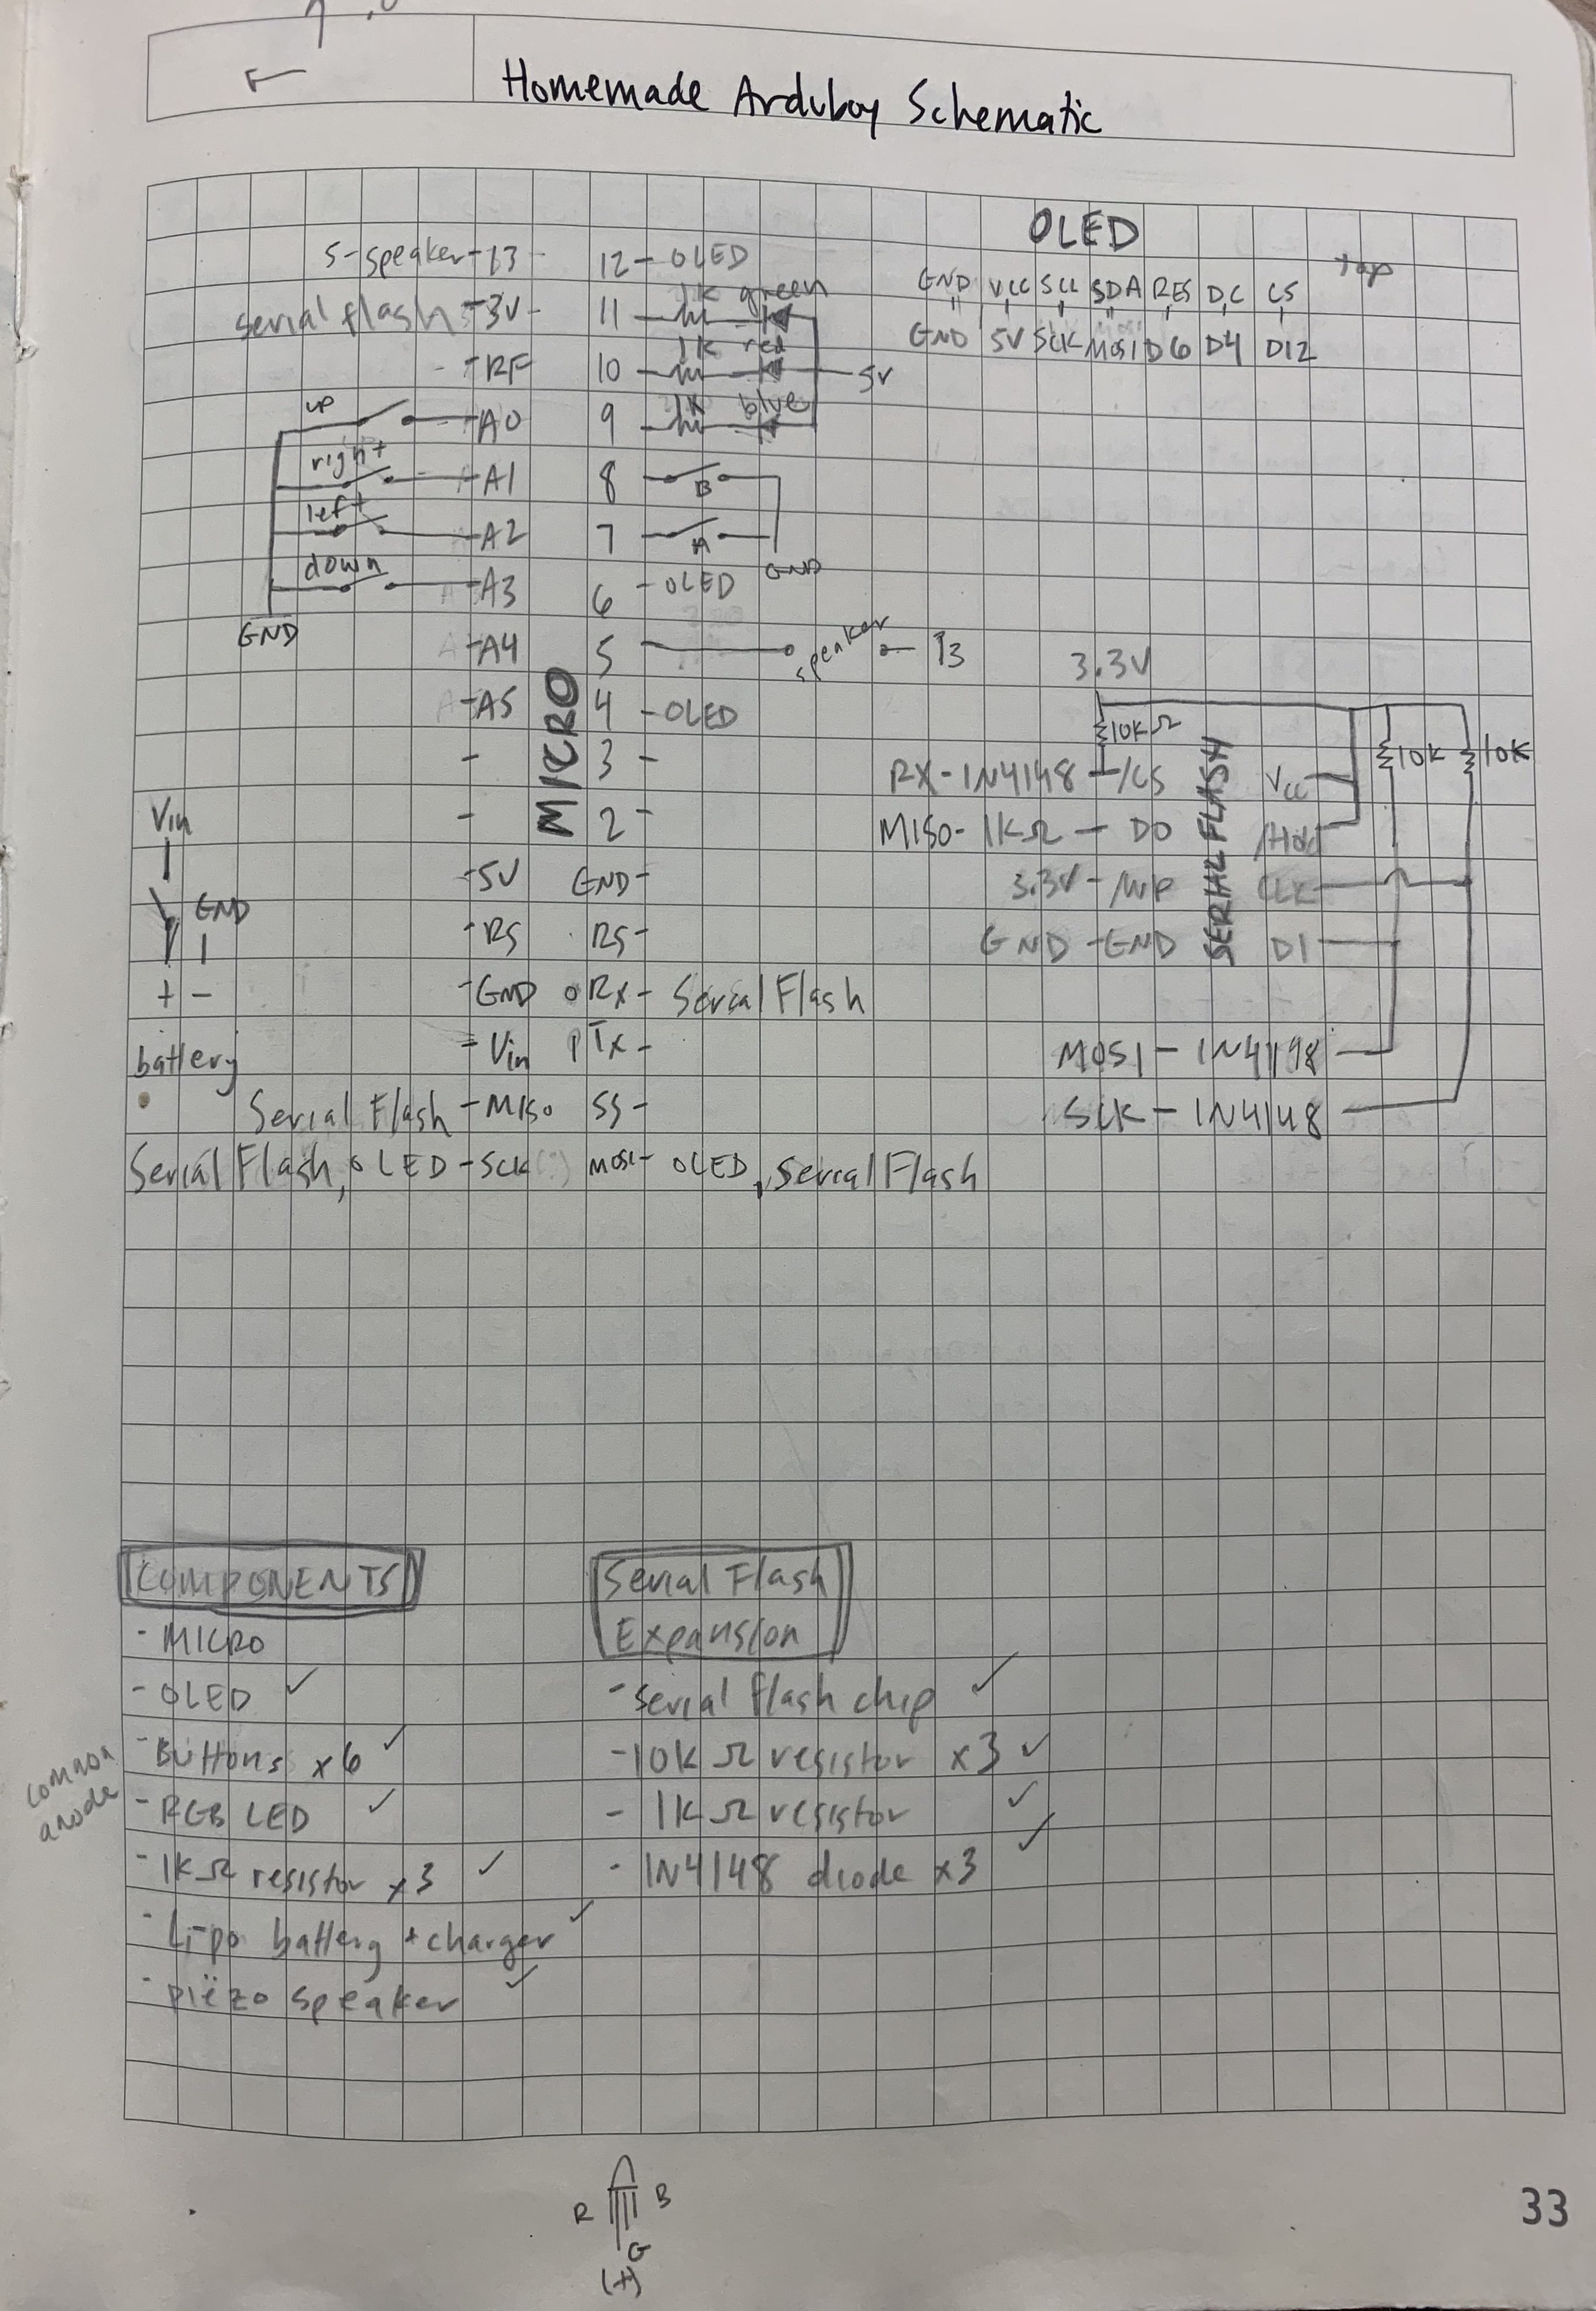 Homemade Arduboy Schematic
OLED
top
GND VCC SCL SDA RES DC CS
GND 5V SCK MOSI D6 D4 D12
5-speaker-13 12-OLED
serial flash-3V- 11 1k green
-RF 10 1k red 5V
up A0 9 1k blue
right A1 8 B
left A2 7 A
down A3 6 -OLED GND
GND -A4 5 speaker 13
-A5 4 -OLED
MICRO
- 3 -
- 2 -
-5V GND-
-RS RS-
-GND 0 Rx- Serial Flash
-Vin 1 Tx-
Serial Flash -MISO SS-
Serial Flash, OLED -SCK MOSI- OLED, Serial Flash
Vin
GND
+ -
battery
3.3V
10KΩ 10K 10K
SERIAL FLASH
RX-1N4148 /CS Vcc
MISO-1KΩ- DO /Hold
3.3V-/WP CLK
GND-GND DI
MOSI-1N4148
SCK-1N4148
COMPONENTS
-MICRO
-OLED ✓
-Buttons x6 ✓
common anode
-RGB LED ✓
-1KΩ resistor x3 ✓
-Lipo battery + charger ✓
-piëzo speaker ✓
Serial Flash
Expansion
-serial flash chip ✓
-10KΩ resistor x3 ✓
-1KΩ resistor ✓
-1N4148 diode x3 ✓
R B
G
(+)
33